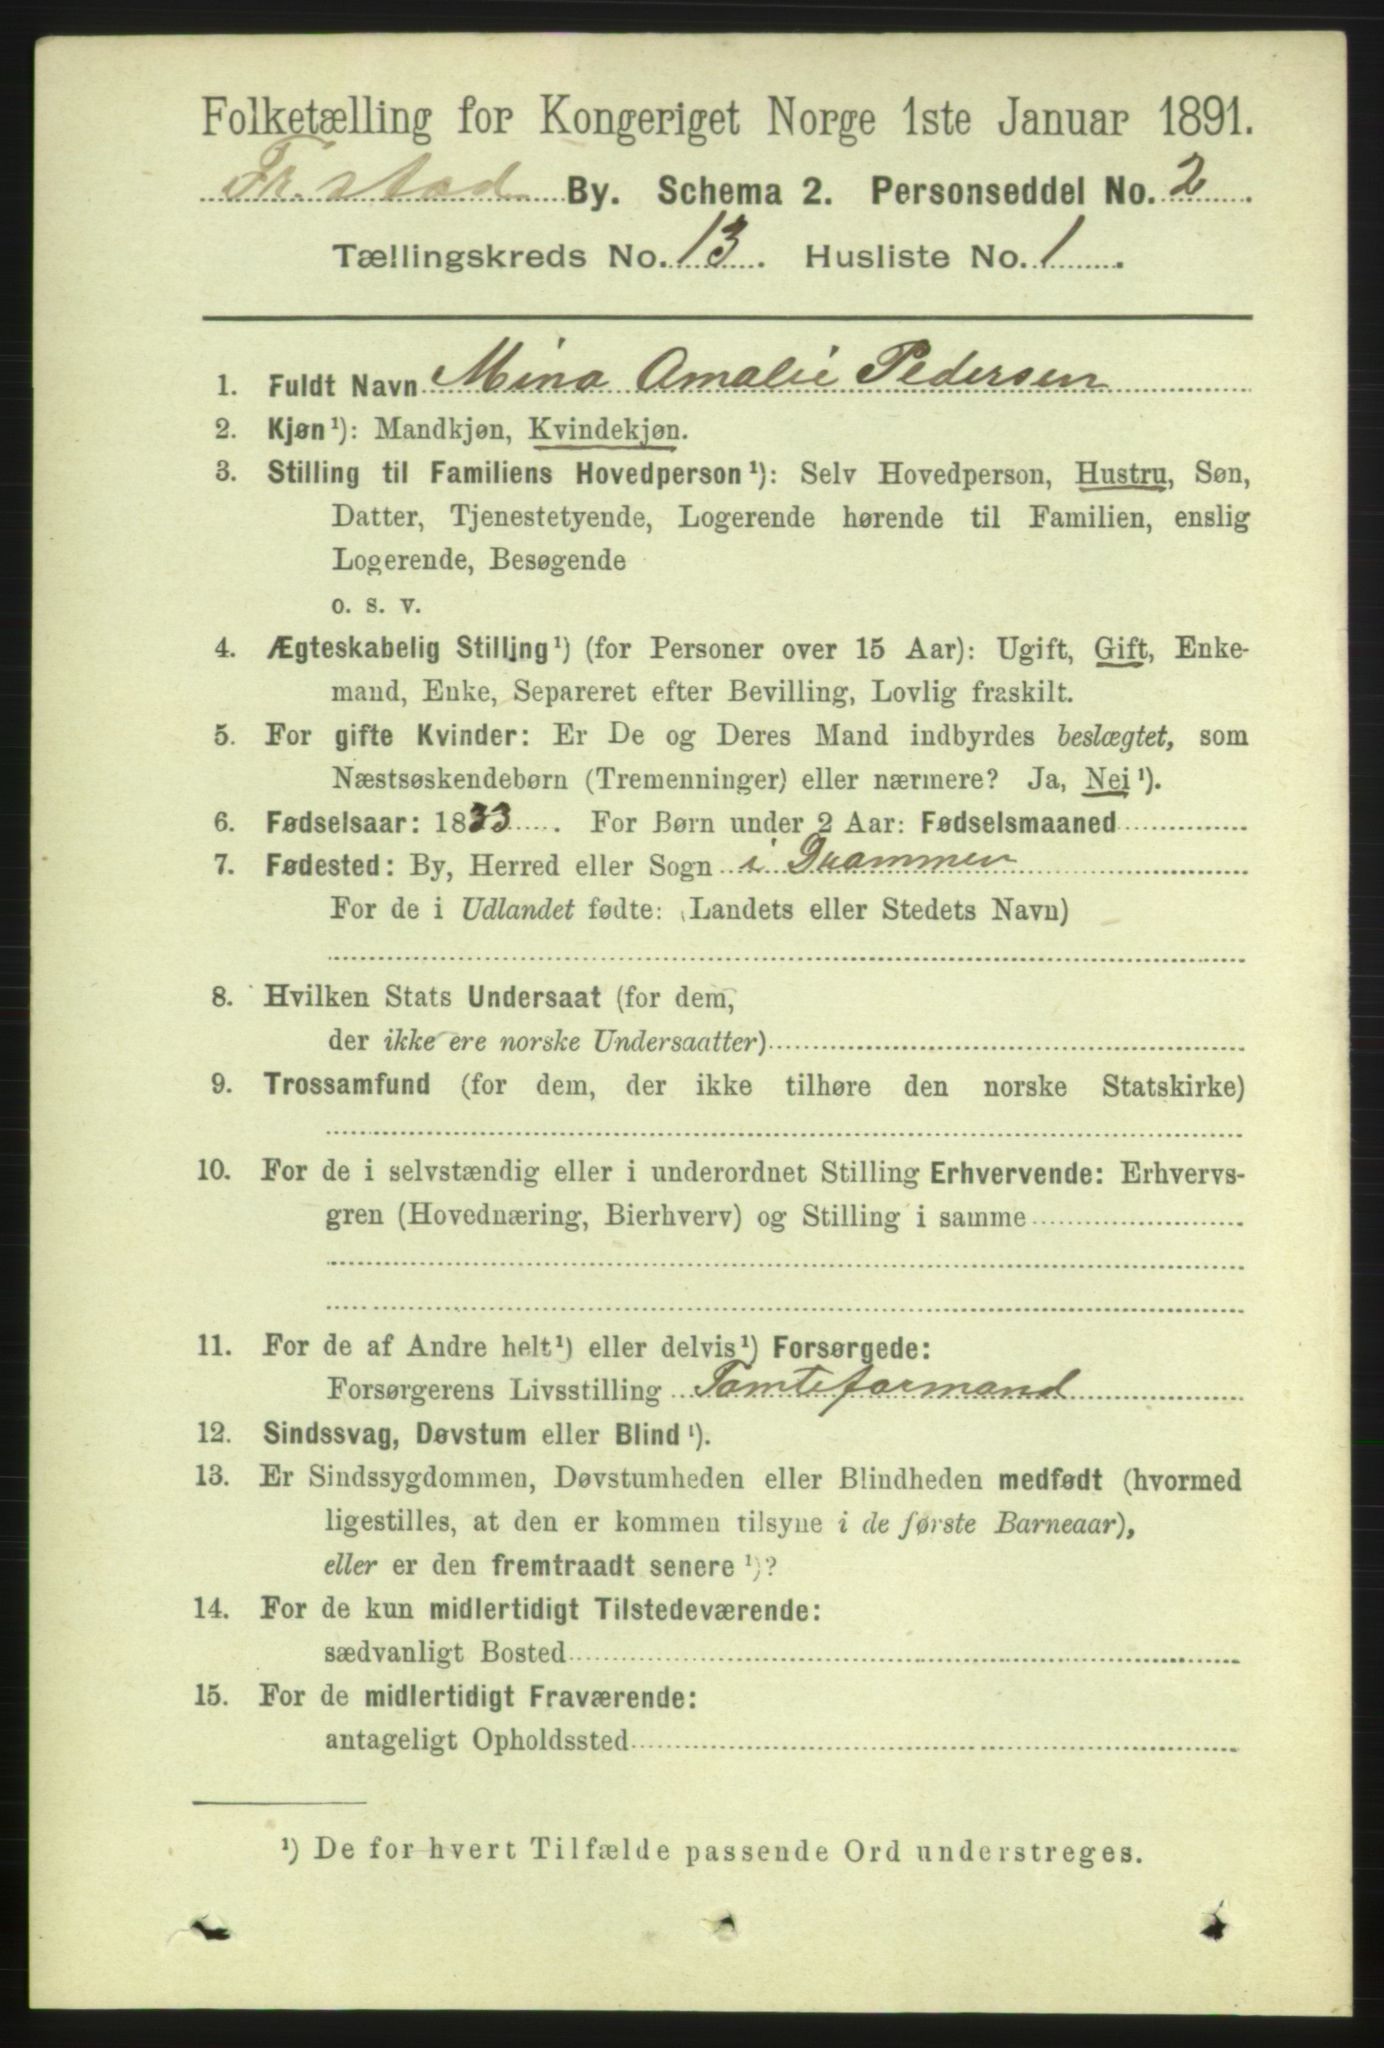 Folketælling for Kongeriget Norge 1ste Januar 1891.
Fr.stad By. Schema 2. Personseddel No. 2
Tællingskreds No. 13. Husliste No. 1.
1. Fuldt Navn Mina Amalie Pedersen
2. Kjøn¹): Mandkjøn, Kvindekjøn.
3. Stilling til Familiens Hovedperson¹): Selv Hovedperson, Hustru, Søn,
Datter, Tjenestetyende, Logerende hørende til Familien, enslig
Logerende, Besøgende
o. s. v.
4. Ægteskabelig Stilling¹) (for Personer over 15 Aar): Ugift, Gift, Enke-
mand, Enke, Separeret efter Bevilling, Lovlig fraskilt.
5. For gifte Kvinder: Er De og Deres Mand indbyrdes beslægtet, som
Næstsøskendebørn (Tremenninger) eller nærmere? Ja, Nei¹).
6. Fødselsaar: 1833. For Børn under 2 Aar: Fødselsmaaned
7. Fødested: By, Herred eller Sogn i Drammen
For de i Udlandet fødte: (Landets eller Stedets Navn)
8. Hvilken Stats Undersaat (for dem,
der ikke ere norske Undersaatter)
9. Trossamfund (for dem, der ikke tilhøre den norske Statskirke)
10. For de i selvstændig eller i underordnet Stilling Erhvervende: Erhvervs-
gren (Hovednæring, Bierhverv) og Stilling i samme
11. For de af Andre helt¹) eller delvis¹) Forsørgede:
Forsørgerens Livsstilling Tomteformand
12. Sindssvag, Døvstum eller Blind¹).
13. Er Sindssygdommen, Døvstumheden eller Blindheden medfødt (hvormed
ligestilles, at den er kommen tilsyne i de første Barneaar),
eller er den fremtraadt senere¹)?
14. For de kun midlertidigt Tilstedeværende:
sædvanligt Bosted
15. For de midlertidigt Fraværende:
antageligt Opholdssted
¹) De for hvert Tilfælde passende Ord understreges.